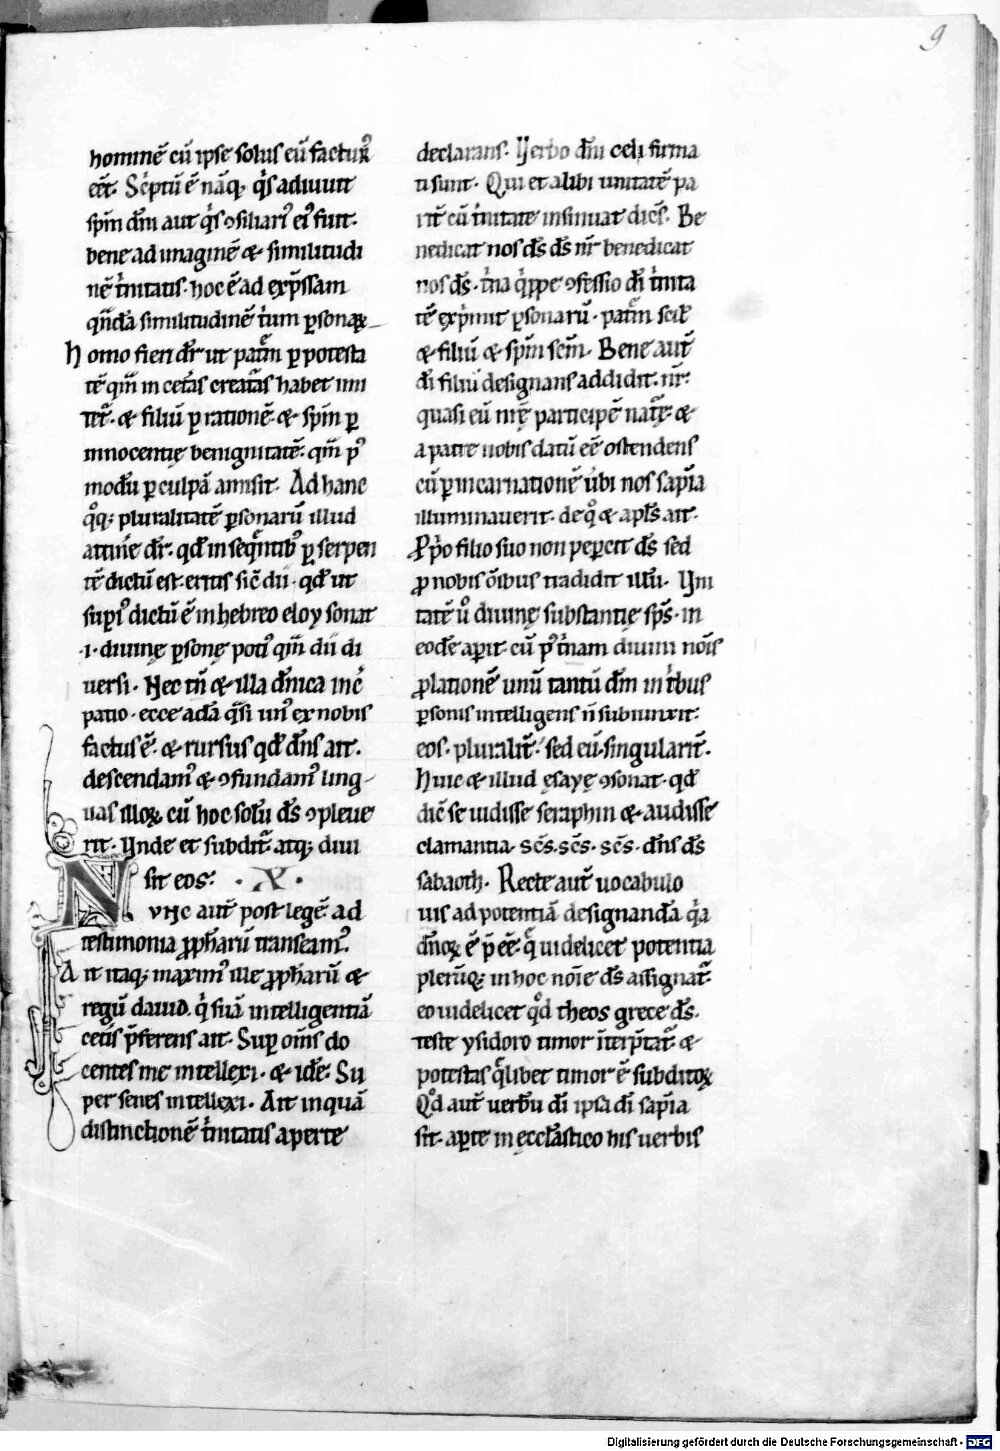 9
hominē cū ipse solus eū factur᷒
eēt. Sc̓ptū ē nāq; q̓s adiuuit
sp̄m dn̄i aut q̓s ꝯsiliari᷒ ei᷒ fuit.
bene ad imaginē & similitudi
nē t̓nitatis. hoc ē ad exp̄ssam
qn̄dā similitudinē t̓um ꝑsonaꝝ
homo fieri dr̄ ut patrē ꝑ potesta
tē qm̄ in cet̓as creat̓as habet imi
tet᷒. & filiū ꝑ rationē & sp̄m ꝑ
innocentię benignitatē. qm̄ p᷒
modū ꝑ culpā amisit. Ad hanc
q̊q; pluralitatē ꝑsonarū illud
attinē dr̄. qd̄ in seq̄ntib᷒ ꝑ serpen
tē dictū est. eritis sic̄ dii. qd̄ ut
sup̄i᷒ dictū ē in hebreo eloy sonat
.i. diuinę ꝑsonę poti᷒ qm̄ dii di
uersi. Nec tn̄ & illa dn̄ica inc̓
patio. ecce adā q̄si un᷒ ex nobis
factus ē. & rursus qd̄ dn̄s ait.
descendam᷒ & ꝯfundam᷒ ling
uas illoꝝ. cū hoc solū ds̄ ꝯpleue
rit. Vnde et subditr̄ atq; diui
sit eos. · X ·
NVNC aut̄ post legē ad
testimonia ꝓph̄arū transeam᷒.
Ait itaq; maxim᷒ ille ꝓph̄arū &
regū dauid. q̓ suā intelligentiā
cet̓is p̄ferens ait. Suꝑ om̄s do
centes me intellexi. & idē. Su
per senes intellexi. Ait inquā
distinctionē t̓nitatis aperte
declarans. Verbo dn̄i celi firma
ti sunt. Qui et alibi unitatē pa
rit̄ cū t̓nitate insinuat dicēs. Be
nedicat nos ds̄ ds̄ nr̄ benedicat
nos ds̄. t̓na q̓ppe ꝯfessio dī t̓nita
tē exp̓mit ꝑsonarū. patrē scil̄
& filiū & sp̄m scm̄. Bene aut̄
dī filiū designans addidit. nr̄.
quasi eū nr̄ę participē natr̄ę. &
a patre nobis datū eē ostendens
cū ꝑ incarnationē ūbi nos sap̄ia
illuminauerit. de q̊ & apls̄ ait.
Ꝓp̓o filio suo non peꝑcit ds̄ sed
ꝓ nobis ōibus tradidit illū. Vni
tatē ů diuinę substantię sp̄s. in
eodē aꝑit. cū p᷒ t̓nam diuini nōis
ꝓlationē unū tantū dm̄ in t̓bus
ꝑsonis intelligens n̄ subiunxit.
eos. pluralit̄. sed eū. singularit̄.
Huic & illud esayę ꝯsonat. qd̄
dic̄ se uidisse seraphin & audisse
clamantia. sc̄s. sc̄s. sc̄s. dn̄s ds̄
sabaoth. Recte aut̄ uocabulo
uis ad potentiā designandā q̓a
dn̄oꝝ ē p̄eē. q̄ uidelicet potentia
pleruq; in hoc nōie ds̄ assignat᷒.
eo uidelicet q̊d theos grece ds̄.
teste ysidoro timor īterp̄tat᷒. &
potestas q̄libet timor ē subditoꝝ
Q̊d aut̄ uerbū dī ipsa dī sap̄ia
sit. aꝑte in eccl̄astico his uerbis
Digitalisierung gefördert durch die Deutsche Forschungsgemeinschaft - DFG